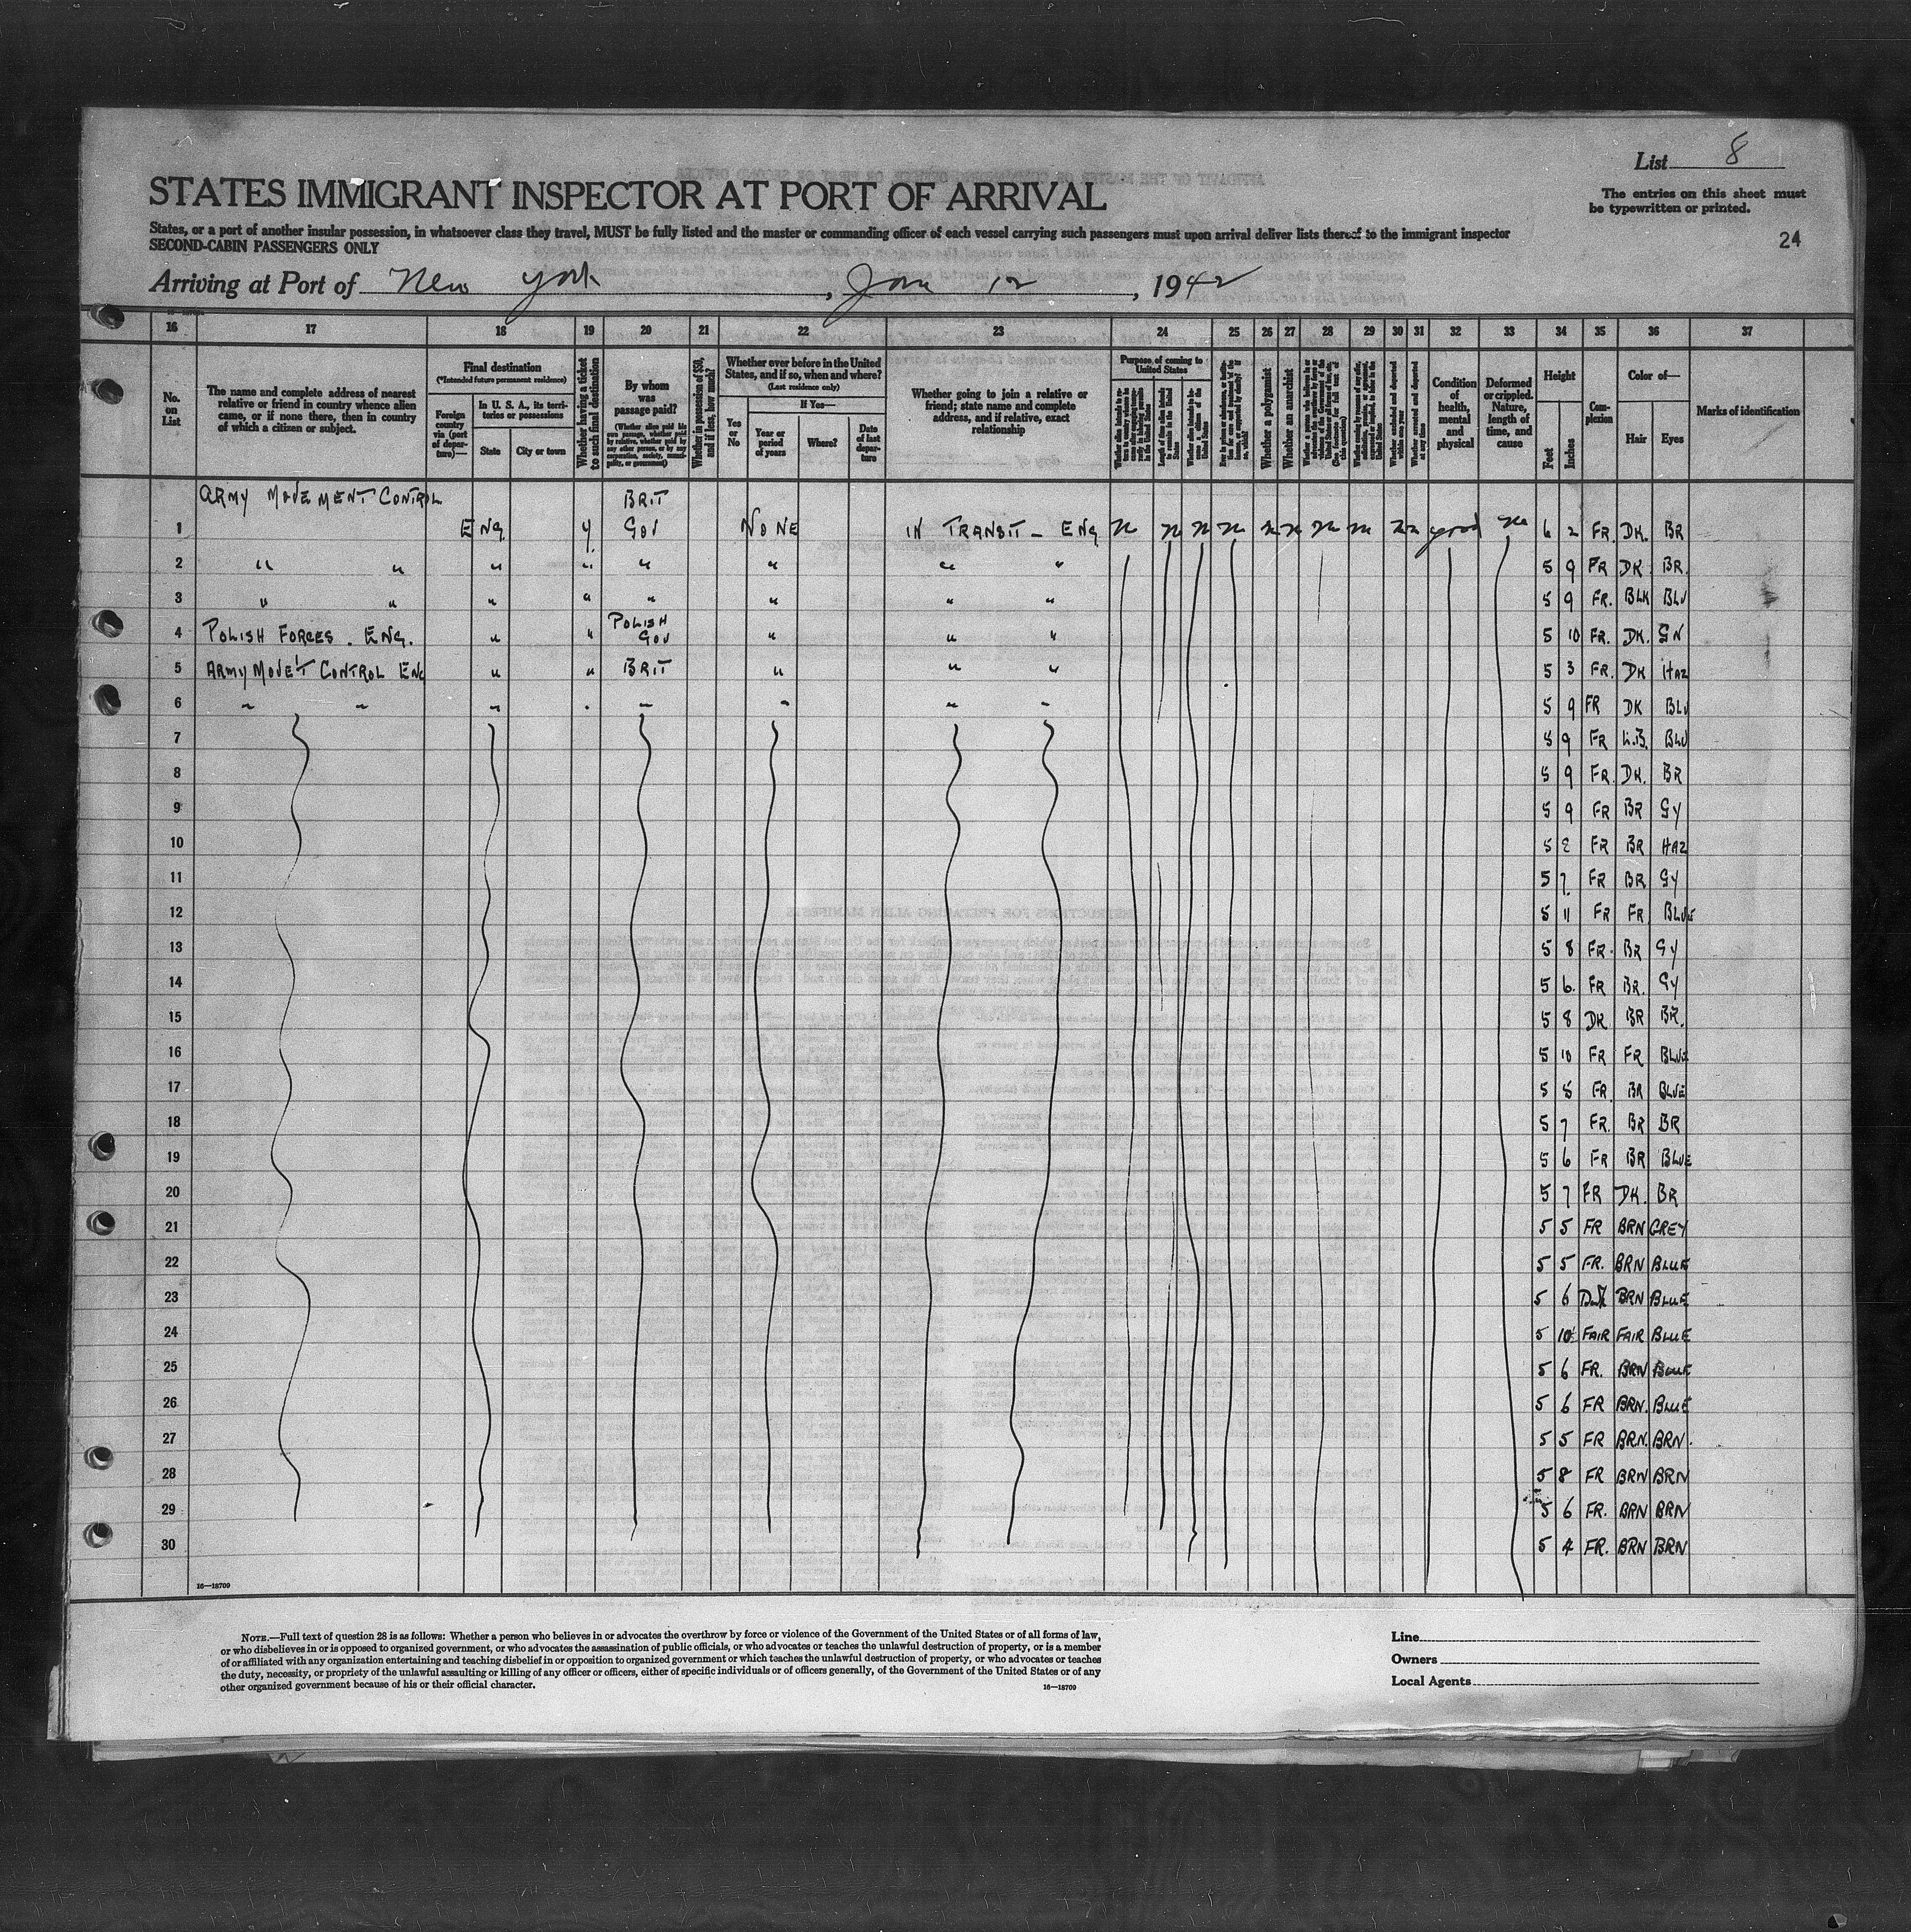 List 8
STATES IMMIGRANT INSPECTOR AT PORT OF ARRIVAL
The entries on this sheet must
be typewritten or printed.
States, or a port of another insular possession, in whatsoever class they travel, MUST be fully listed and the master or commanding officer of each vessel carrying such passengers must upon arrival deliver lists thereof to the immigrant inspector
SECOND-CABIN PASSENGERS ONLY
24
Arriving at Port of New York, Jan 12, 1942
16 17 18 19 20 21 22 23 24 25 26 27 28 29 30 31 32 33 34 35 36 37
No. on List
The name and complete address of nearest
relative or friend in country whence alien
came, or if none there, then in country
of which a citizen or subject.
Final destination
(*Intended future permanent residence)
Foreign country via (port of departure)—
In U. S. A., its territories or possessions
State
City or town
Whether having a ticket to such final destination
By whom was passage paid?
(Whether alien paid his own passage, whether paid by relative, whether paid by any other person, or by any corporation, society, municipality, or government)
Whether in possession of $50, and if less, how much?
Whether ever before in the United States, and if so, when and where?
(Last residence only)
Yes or No
If Yes—
Year or period of years
Where?
Date of last departure
Whether going to join a relative or
friend; state name and complete
address, and if relative, exact
relationship
Purpose of coming to United States
Whether a polygamist
Whether an anarchist
Condition of health, mental and physical
Deformed or crippled. Nature, length of time, and cause
Height
Feet
Inches
Complexion
Color of—
Hair
Eyes
Marks of identification
ARMY MOVEMENT CONTROL BRIT
1 ENG. Y. GOV NONE IN TRANSIT - ENG n n n n n n n n n n good no 6 2 FR. DK. BR
2 " " " " " " " " 5 9 FR DK BR.
3 " " " " " " " " 5 9 FR. BLK BLU
4 POLISH FORCES. ENG. " " POLISH GOV " " " 5 10 FR. DK. GN
5 ARMY MOVE'T CONTROL ENG " " BRIT " " " 5 3 FR. DK HAZ
6 " " " . " " " " 5 9 FR DK BLU
7 5 9 FR L.B. BLU
8 5 9 FR. DK. BR
9 5 9 FR BR GY
10 5 8 FR BR HAZ
11 5 7. FR BR GY
12 5 11 FR FR BLUE
13 5 8 FR. BR GY
14 5 6. FR BR. GY
15 5 8 DK BR BR.
16 5 10 FR FR BLUE
17 5 8 FR. BR BLUE
18 5 7 FR. BR BR
19 5 6 FR BR BLUE
20 5 7 FR DK. BR
21 5 5 FR BRN GREY
22 5 5 FR. BRN BLUE
23 5 6 Dark BRN BLUE
24 5 10 FAIR FAIR BLUE
25 5 6 FR. BRN BLUE
26 5 6 FR BRN. BLUE
27 5 5 FR BRN. BRN.
28 5 8 FR BRN BRN
29 5 6 FR. BRN BRN
30 5 4 FR. BRN BRN
16—18709
NOTE.—Full text of question 28 is as follows: Whether a person who believes in or advocates the overthrow by force or violence of the Government of the United States or of all forms of law,
or who disbelieves in or is opposed to organized government, or who advocates the assassination of public officials, or who advocates or teaches the unlawful destruction of property, or is a member
of or affiliated with any organization entertaining and teaching disbelief in or opposition to organized government or which teaches the unlawful destruction of property, or who advocates or teaches
the duty, necessity, or propriety of the unlawful assaulting or killing of any officer or officers, either of specific individuals or of officers generally, of the Government of the United States or of any
other organized government because of his or their official character.
16—18709
Line
Owners
Local Agents